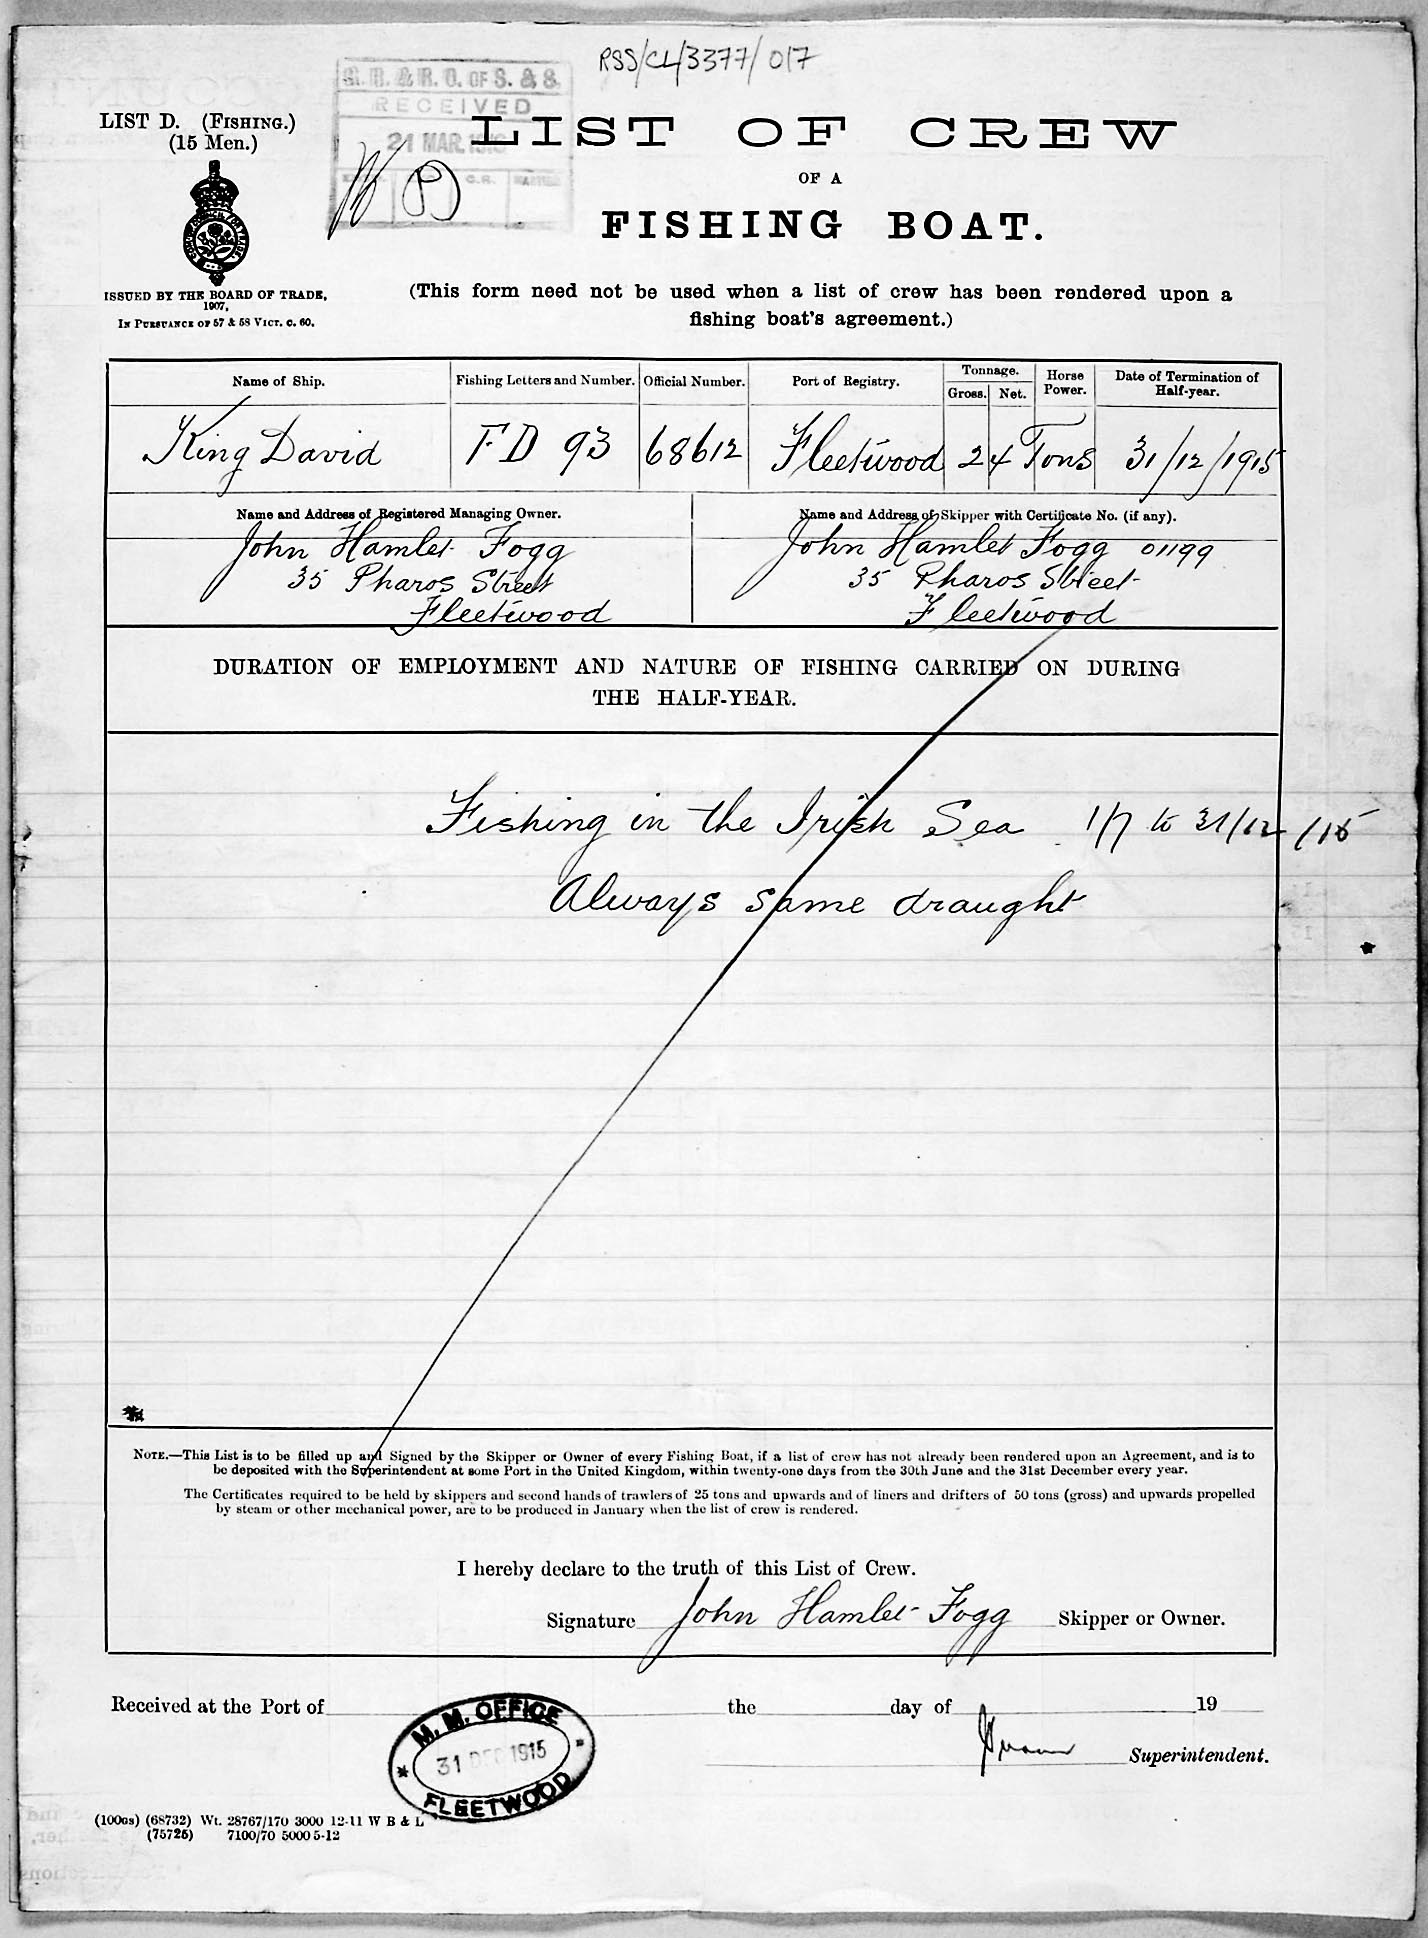 RSS/CL/3377/017
G. R. & R. O. OF S. & S.
RECEIVED
21 MAR. 1916
C.R.
LIST D. (FISHING.)
(15 Men.)
ISSUED BY THE BOARD OF TRADE,
1907,
IN PURSUANCE OF 57 & 58 VICT. C. 60.
LIST OF CREW
OF A
FISHING BOAT.
(This form need not be used when a list of crew has been rendered upon a
fishing boat's agreement.)
Name of Ship. Fishing Letters and Number. Official Number. Port of Registry. Tonnage. Gross. Net. Horse Power. Date of Termination of Half-year.
King David FD 93 68612 Fleetwood 24 Tons 31/12/1915
Name and Address of Registered Managing Owner. Name and Address of Skipper with Certificate No. (if any).
John Hamlet Fogg John Hamlet Fogg 01199
35 Pharos Street 35 Pharos Street
Fleetwood Fleetwood
DURATION OF EMPLOYMENT AND NATURE OF FISHING CARRIED ON DURING
THE HALF-YEAR.
Fishing in the Irish Sea 1/7 to 31/12/15
Always same draught
NOTE.—This List is to be filled up and Signed by the Skipper or Owner of every Fishing Boat, if a list of crew has not already been rendered upon an Agreement, and is to
be deposited with the Superintendent at some Port in the United Kingdom, within twenty-one days from the 30th June and the 31st December every year.
The Certificates required to be held by skippers and second hands of trawlers of 25 tons and upwards and of liners and drifters of 50 tons (gross) and upwards propelled
by steam or other mechanical power, are to be produced in January when the list of crew is rendered.
I hereby declare to the truth of this List of Crew.
Signature John Hamlet Fogg Skipper or Owner.
Received at the Port of the day of 19
M. M. OFFICE
31 DEC 1915
FLEETWOOD
Superintendent.
(100GS) (68732) Wt. 28767/170 3000 12-11 W B & L
(75725) 7100/70 5000 5-12